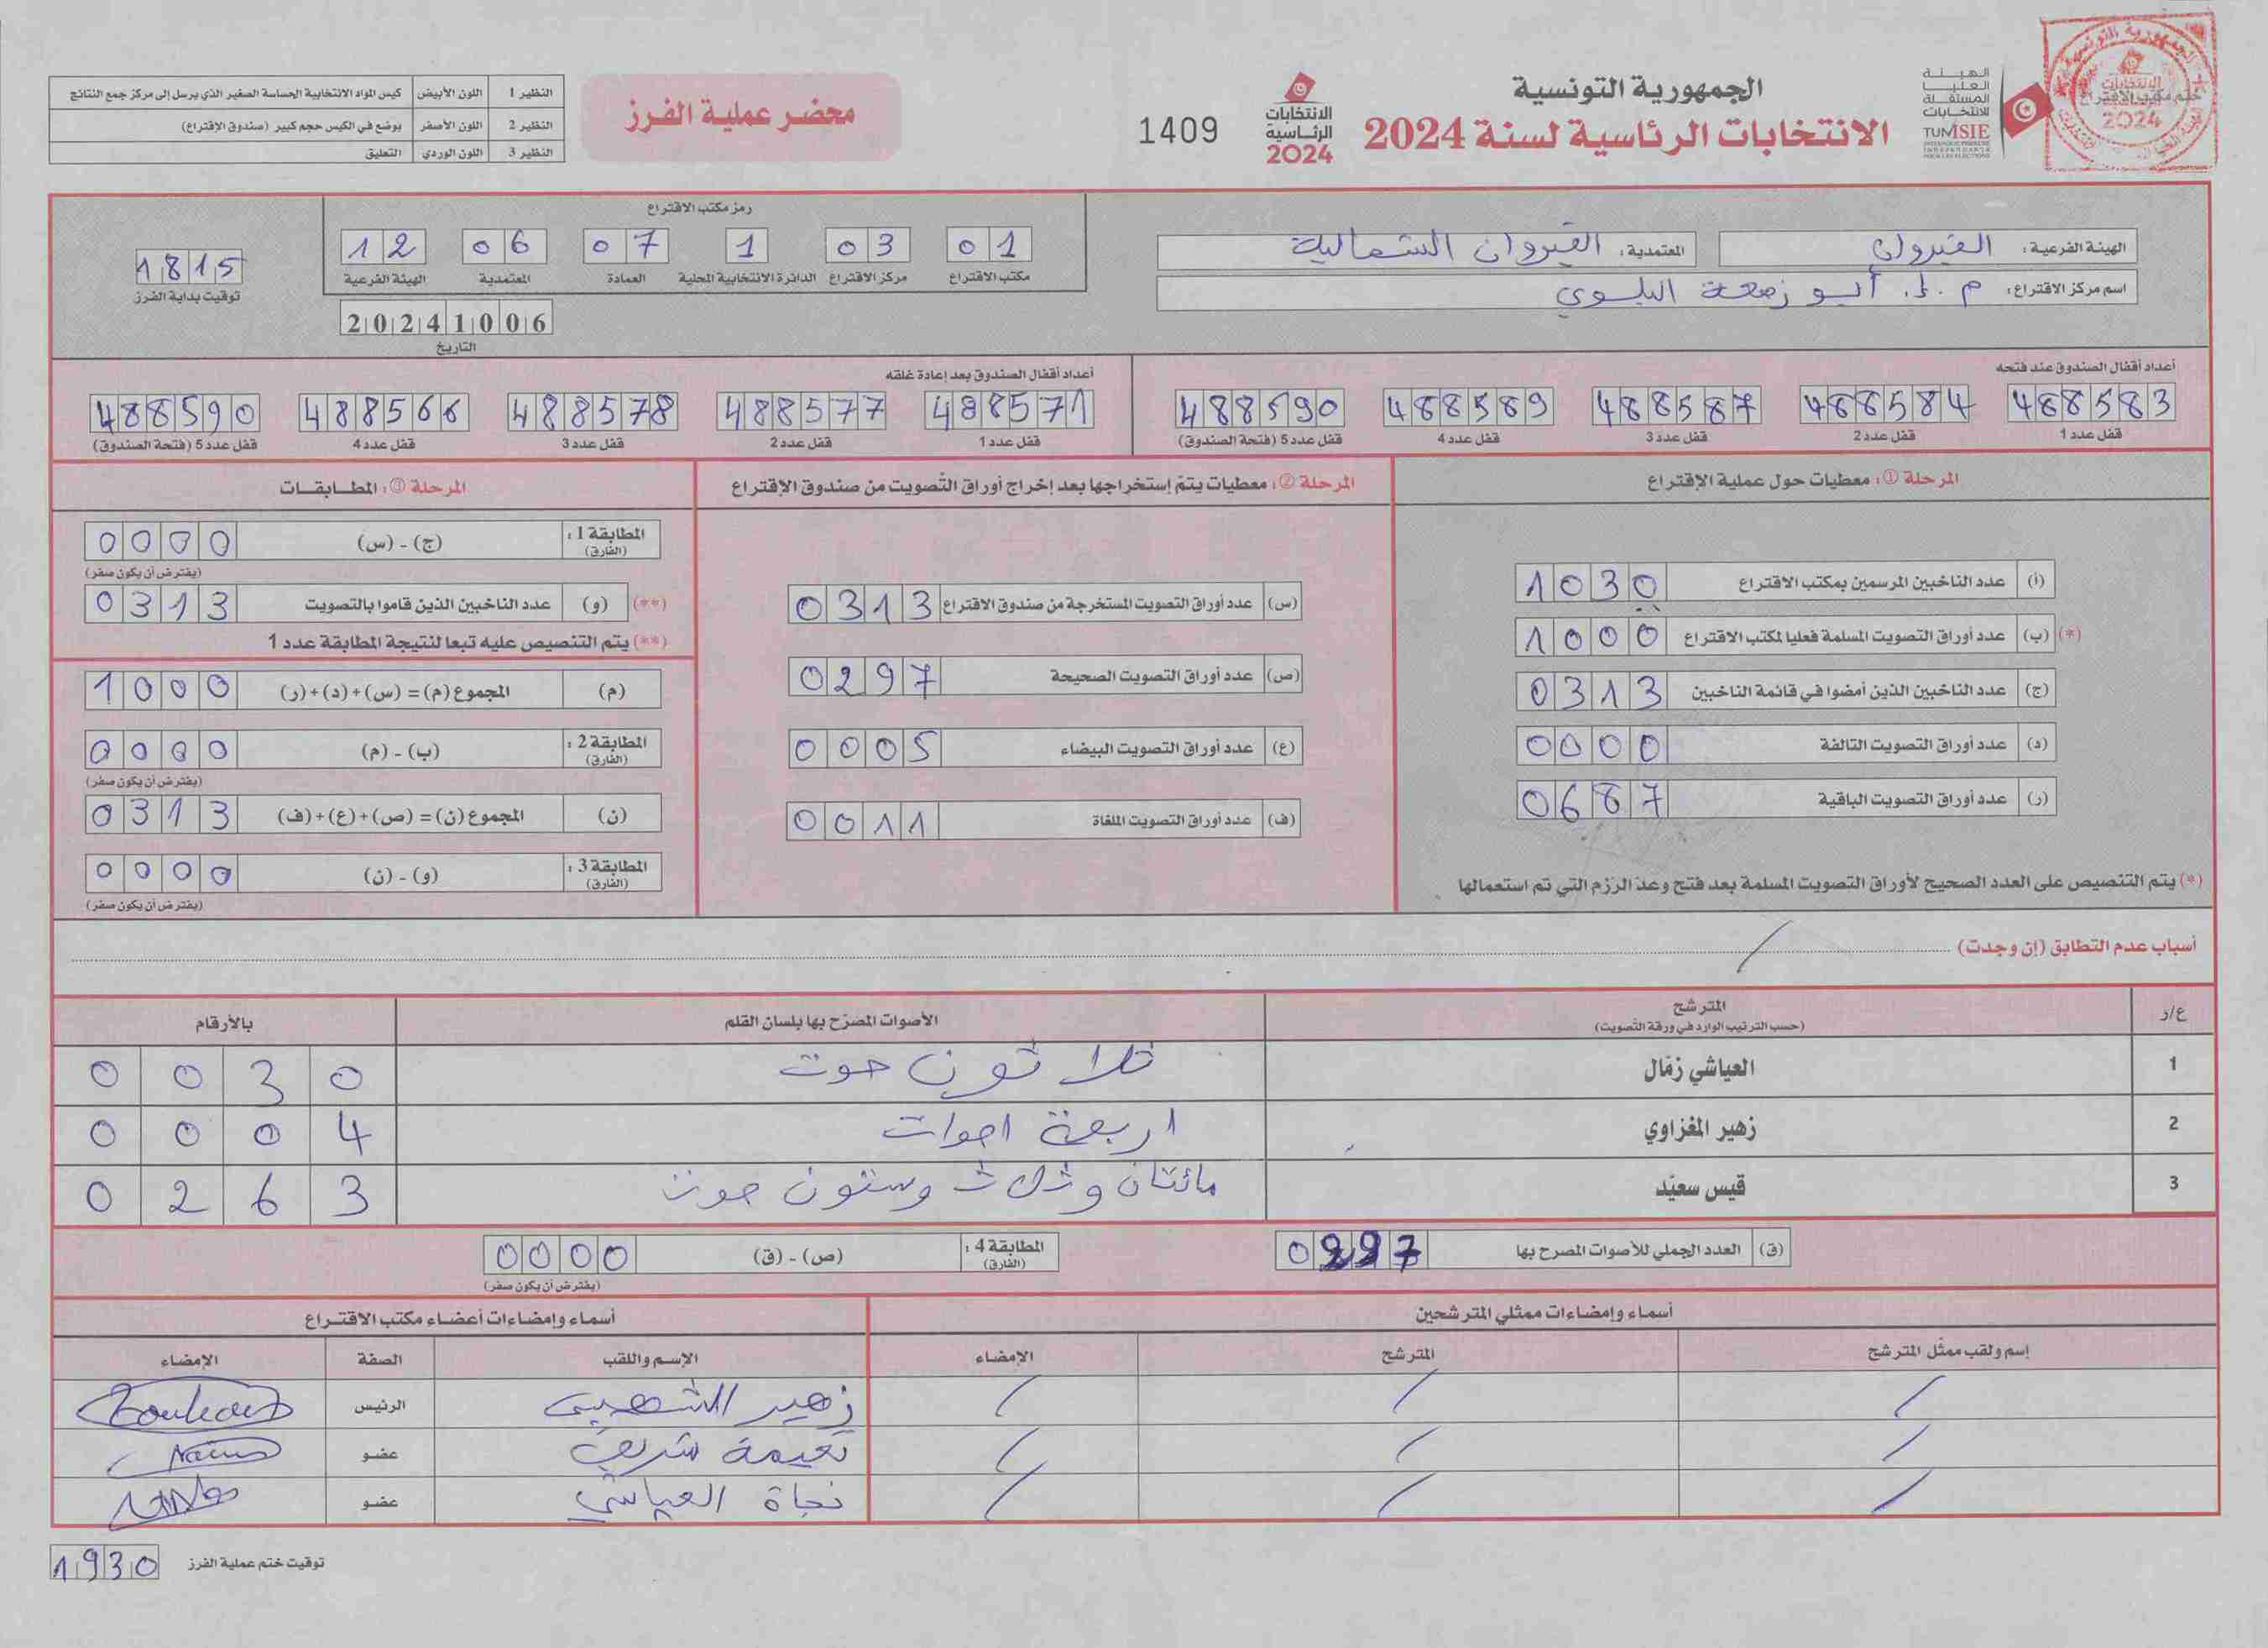 الجمهورية التونسية
الانتخابات الرئاسية لسنة 2024
الانتخابات
الرئاسية
2024
1409
الهيئة
العليا
المستقلة
للانتخابات
TUNISIE
محضر عملية الفرز
النظير 1 اللون الأبيض كيس المواد الانتخابية الحساسة الصغير الذي يرسل إلى مركز جمع النتائج
النظير 2 اللون الأصفر يوضع في الكيس حجم كبير (صندوق الإقتراع)
النظير 3 اللون الوردي التعليق
الهيئة الفرعية: القيروان
المعتمدية: القيروان الشمالية
اسم مركز الاقتراع: م.إ. أبو زمعة البلوي
رمز مكتب الاقتراع
01 مكتب الاقتراع
03 مركز الاقتراع
1 الدائرة الانتخابية المحلية
07 العمادة
06 المعتمدية
12 الهيئة الفرعية
20241006
التاريخ
1815
توقيت بداية الفرز
أعداد أقفال الصندوق عند فتحه
488583 488584 488587 488589 488590
قفل عدد 1 قفل عدد 2 قفل عدد 3 قفل عدد 4 قفل عدد 5 (فتحة الصندوق)
أعداد أقفال الصندوق بعد إعادة غلقه
488571 488577 488578 488566 488590
قفل عدد 1 قفل عدد 2 قفل عدد 3 قفل عدد 4 قفل عدد 5 (فتحة الصندوق)
المرحلة ①: معطيات حول عملية الإقتراع
(أ) عدد الناخبين المرسمين بمكتب الاقتراع 1030
(*) (ب) عدد أوراق التصويت المسلمة فعليا لمكتب الاقتراع 1000
(ج) عدد الناخبين الذين أمضوا في قائمة الناخبين 0313
(د) عدد أوراق التصويت التالفة 0000
(ر) عدد أوراق التصويت الباقية 0687
(*) يتم التنصيص على العدد الصحيح لأوراق التصويت المسلمة بعد فتح وعدّ الرّزم التي تم استعمالها
المرحلة ②: معطيات يتمّ إستخراجها بعد إخراج أوراق التّصويت من صندوق الإقتراع
(س) عدد أوراق التصويت المستخرجة من صندوق الاقتراع 0313
(ص) عدد أوراق التصويت الصحيحة 0297
(ع) عدد أوراق التصويت البيضاء 0005
(ف) عدد أوراق التصويت الملغاة 0011
المرحلة ③: المطـابقـات
المطابقة 1: (الفارق) (ج) - (س) 0000
(يفترض أن يكون صفر)
(**) (و) عدد الناخبين الذين قاموا بالتصويت 0313
(**) يتم التنصيص عليه تبعا لنتيجة المطابقة عدد 1
(م) المجموع (م) = (س)+(د)+(ر) 1000
المطابقة 2: (الفارق) (ب) - (م) 0000
(يفترض أن يكون صفر)
(ن) المجموع (ن) = (ص)+(ع)+(ف) 0313
المطابقة 3: (الفارق) (و) - (ن) 0000
(يفترض أن يكون صفر)
أسباب عدم التطابق (إن وجدت) /
ع/ر المترشح الأصوات المصرّح بها بلسان القلم بالأرقام
(حسب الترتيب الوارد في ورقة التّصويت)
1 العياشي زمّال ثلاثون صوت 0030
2 زهير المغزاوي اربعة اصوات 0004
3 قيس سعيّد مائتان وثلاث وستون صوت 0263
(ق) العدد الجملي للأصوات المصرح بها 0297
المطابقة 4: (الفارق) (ص) - (ق) 0000
(يفترض أن يكون صفر)
أسماء وإمضاءات ممثلي المترشحين
إسم ولقب ممثّل المترشح المترشح الإمضاء
/ / /
/ / /
/ / /
أسماء وإمضاءات أعضاء مكتب الاقتـراع
الإسم واللقب الصفة الإمضاء
زهير الشهيبي الرئيس
نعيمة شريف عضو
نجاة العياشي عضو
توقيت ختم عملية الفرز 1930